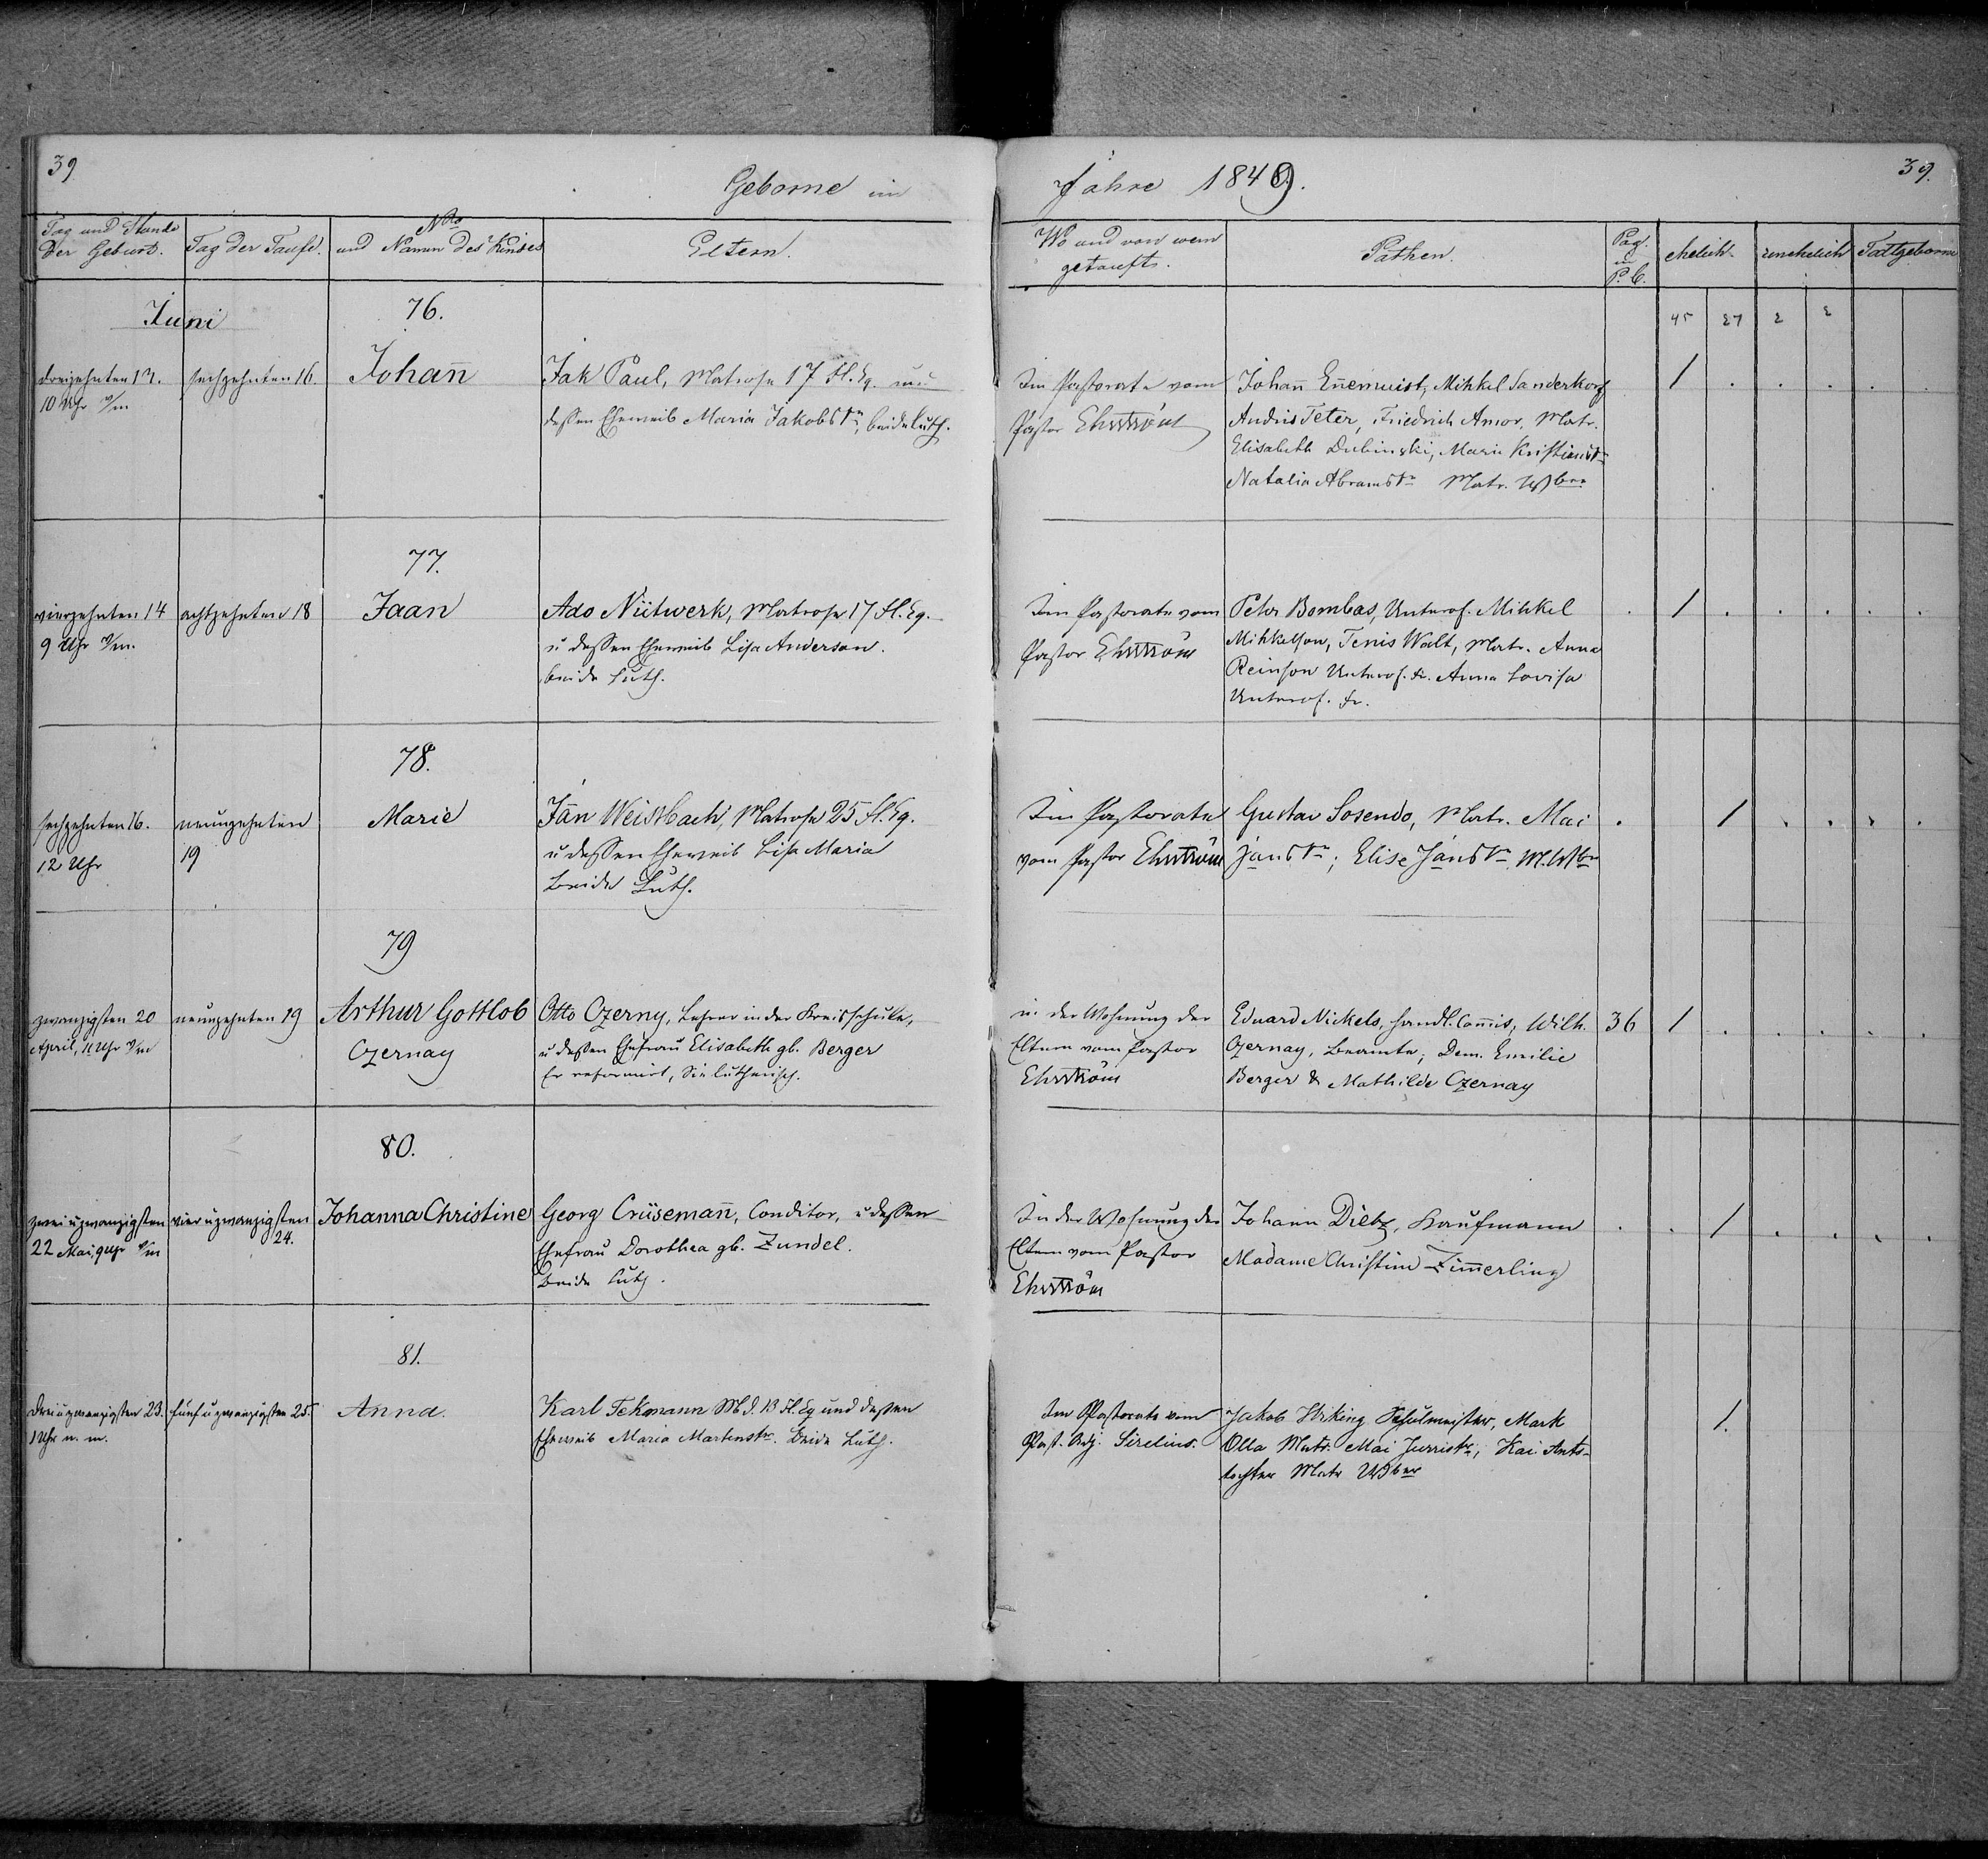 39
Geborne im
Jahre 1849.
39.
Tag und Stunde der Geburt.
Tag der Taufe.
Nro und Namen des Kindes
Eltern.
Wo und von wem getauft.
Pathen.
Pag. in P. C.
ehelich
unehelich
Todtgeborne
45 27 2 2
Juni
76.
dreizehnten 13.
10 Uhr v/m
sechzehnten 16.
Johan̄
Jak Paul, Matrose 17 Fl. Eq. und
dessen Eheweib Maria Jakobstr, beide luth.
Im Pastorate vom
Pastor Ehrström
Johan̄ En̄emuist, Mihkel Sanderkorf
Andris Peter, Friedrich Amor, Matr.
Elisabeth Dubinski, Marie Kristianstr
Natalia Abramstr Matr. Wbrr
1 . . . . .
77.
vierzehnten 14
9 Uhr v/m.
achtzehnten 18
Jaan
Ado Niitwerk, Matrose 17 Fl. Eq.
u dessen Eheweib Lisa Anderson.
beide Luth.
Im Pastorate vom
Pastor Ehrström
Petr Bombas, Unterof. Mihkel
Mihkelson, Tenis Walt, Matr. Anna
Reinson Unterof. Fr. Anna Lovisa
Unterof. Fr.
. 1 . . . . .
78.
sechzehnten 16.
12 Uhr
neunzehnten
19
Marie
Jän Weissbach, Matrose 25 Fl. Eq.
u dessen Eheweib Lisa Maria
beide Luth.
Im Pastorate
vom Pastor Ehrström
Gustav Sosendo, Matr. Mai
Janstr; Elise Janstr M. Wbr
. 1 . . . .
79
zwanzigsten 20
April, 11 Uhr v/m
neunzehnten 19
Arthur Gottlob
Czernay
Otto Czerny, Lehrer in der Kreisschule,
u dessen Ehefrau Elisabeth gb. Berger
Er reformirt, Sie lutherisch.
in der Wohnung der
Eltern vom Pastor
Ehrström
Eduard Nickels, Handl. Com̄is, Wilh.
Czernay, Beamte; Dem. Emilie
Berger & Mathilde Czernay
36 1 . . . . .
80.
zwei u zwanzigsten
22 Mai, 9 Uhr v/m
vier u zwanzigsten
24.
Johanna Christine
Georg Crüseman̄, Conditor, u dessen
Ehefrau Dorothea gb. Zundel.
beide Luth.
In der Wohnung der
Eltern vom Pastor
Ehrström
Johann Dietz, Kaufmann
Madame Christine Zim̄erling
. . 1 . . . .
81.
Drei u zwanzigsten 23.
1 Uhr n. m.
fünf u zwanzigsten 25.
Anna.
Karl Tekmann 13 Fl. Eq und dessen
Eheweib Maria Martenstr. Beide Luth.
Im Pastorate vom
Past. Adj. Sirelius.
Jakob Hirking Schulmeister, Mark
Olla Matr. Mai Jurristr, Kai Ants-
tochter Matr Wber
1.